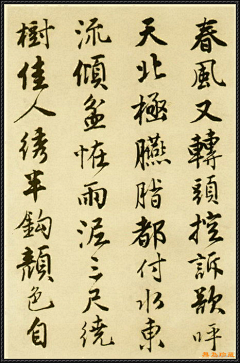 春風又轉頭控訴欲呼
天北極臙脂都付水東
流傾盆怪雨泥三尺繞
樹佳人繡半鈎顏色自